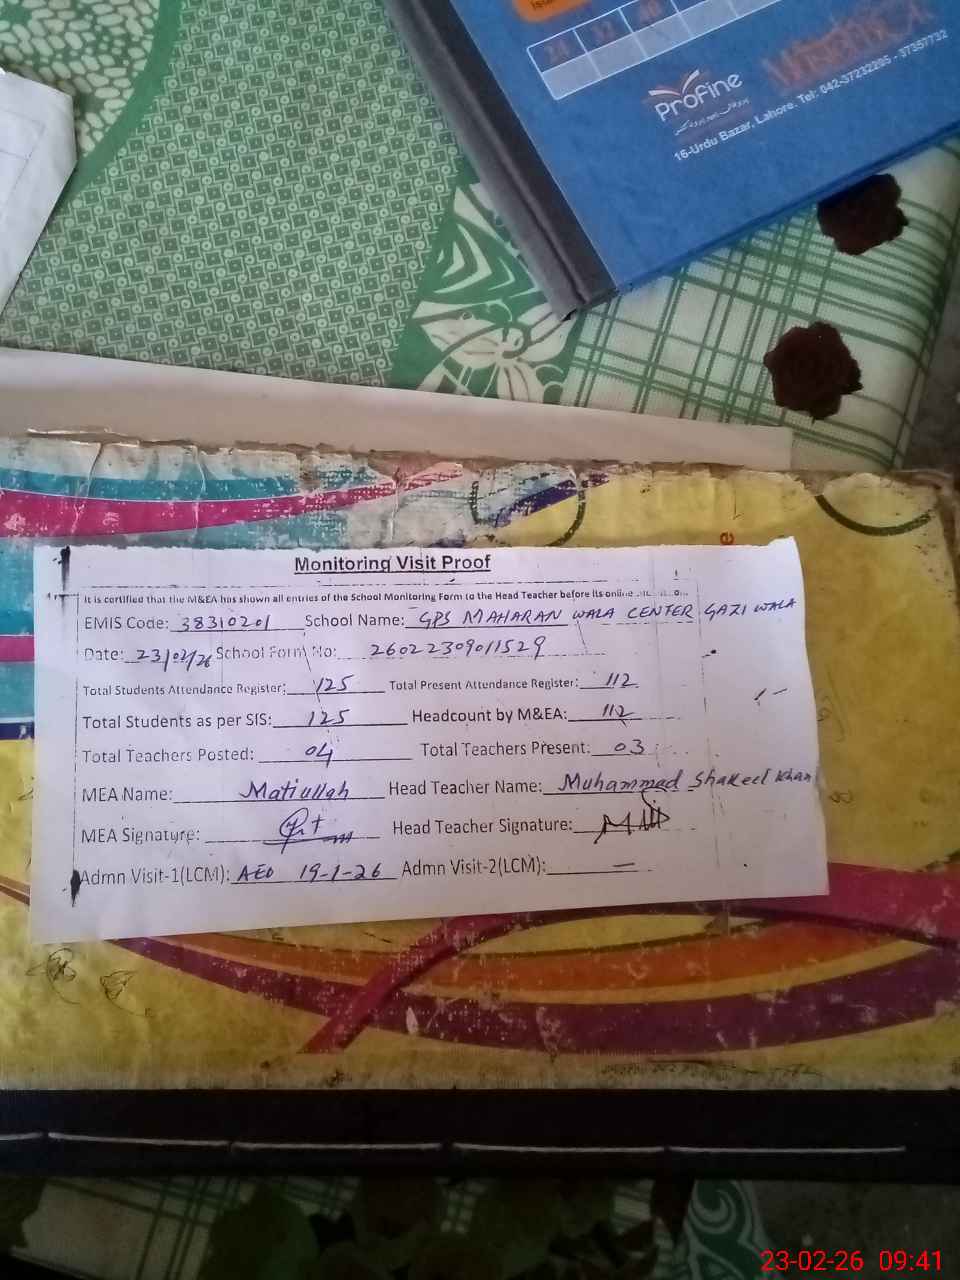 24 32 40
ProFine
16-Urdu Bazar, Lahore. Tel: 042-37232205 - 37357732
Monitoring Visit Proof
It is certified that the M&EA has shown all entries of the School Monitoring Form to the Head Teacher before its online
EMIS Code: 38310201 School Name: GPS MAHARAN WALA CENTER GAZI WALA
Date: 23/02/26 School Form No: 26022309011529
Total Students Attendance Register: 125 Total Present Attendance Register: 112
Total Students as per SIS: 125 Headcount by M&EA: 112
Total Teachers Posted: 04 Total Teachers Present: 03
MEA Name: Matiullah Head Teacher Name: Muhammad Shakeel Khan
MEA Signature: Head Teacher Signature:
Admn Visit-1(LCM): AEO 19-1-26 Admn Visit-2(LCM): —
23-02-26 09:41